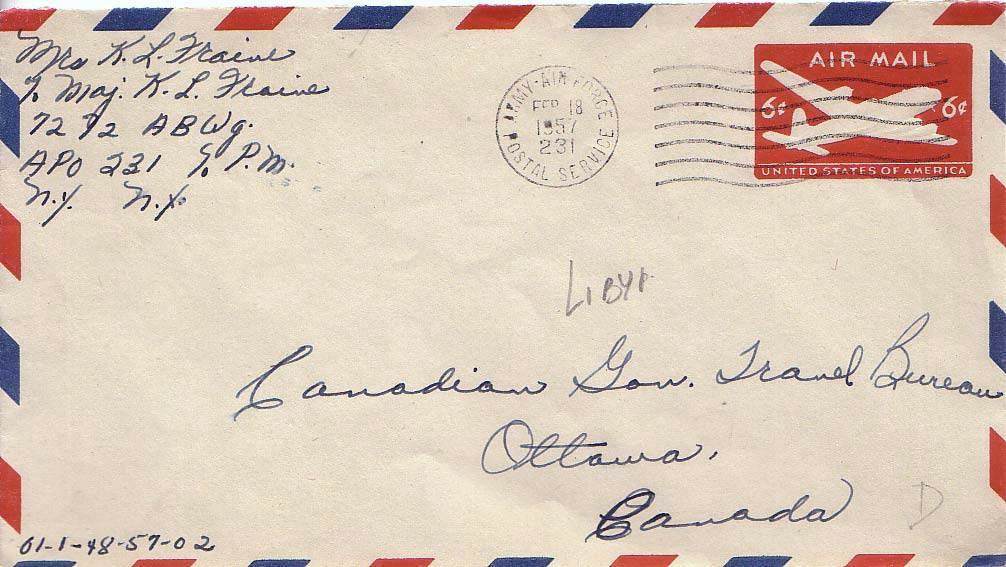 Mrs K. L. Fraine
% Maj. K. L. Fraine
7272 ABWg.
APO 231 % P.M.
N.Y. N.Y.
ARMY-AIR FORCE
FEB 18
1957
231
POSTAL SERVICE
AIR MAIL
6¢ 6¢
UNITED STATES OF AMERICA
LIBYA
Canadian Gov. Travel Bureau
Ottawa,
Canada
D
61-1-48-57-02